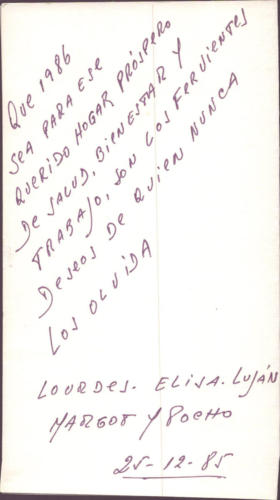 QUE 1986
SEA PARA ESE
QUERIDO HOGAR PRÓSPERO
DE SALUD, BIENESTAR Y
TRABAJO, SON LOS FERVIENTES
DESEOS DE QUIEN NUNCA
LOS OLVIDA
LOURDES. ELISA. LUJÁN
MARGOT Y POCHO
25-12-85